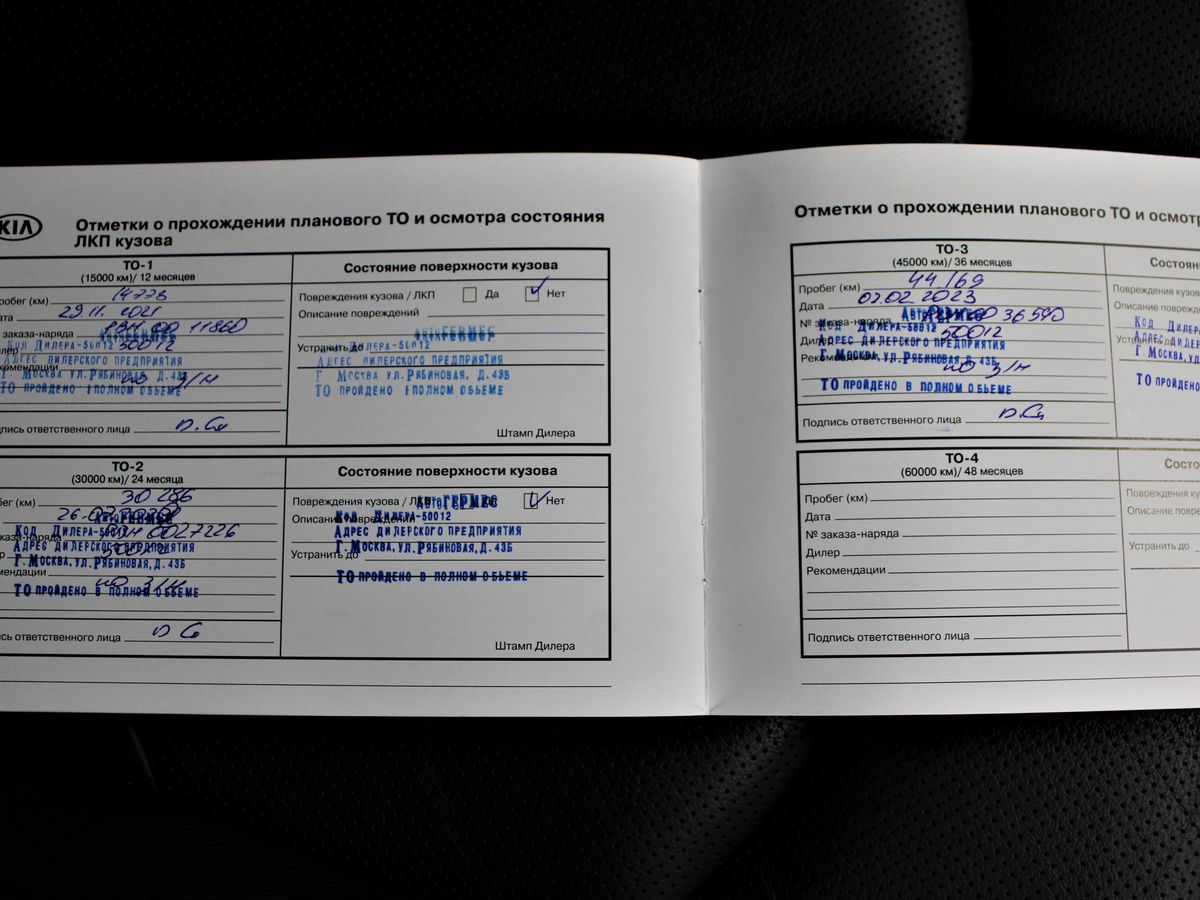 KIA
Отметки о прохождении планового ТО и осмотра состояния
ЛКП кузова
ТО-1
(15000 км)/ 12 месяцев
Пробег (км)
29.11. 2021
заказа-наряда 11860
Код Дилера-50012
Адрес дилерского предприятия
Г Москва ул. Рябиновая, д. 43Б
по з/н
ТО пройдено полном объеме
подпись ответственного лица
Состояние поверхности кузова
Повреждения кузова / ЛКП Да Нет
Описание повреждений
АвтоГЕРМЕС
Устранить до
Код Дилера-50012
Адрес дилерского предприятия
Г Москва ул. Рябиновая, д. 43Б
ТО пройдено полном объеме
Штамп Дилера
ТО-2
(30000 км)/ 24 месяца
30 286
АвтоГЕРМЕС
заказа-наряда 0027226
Код Дилера-50012
Адрес дилерского предприятия
Г. Москва, ул. Рябиновая, д. 43Б
по з/н
ТО пройдено в полном объеме
подпись ответственного лица
Состояние поверхности кузова
Повреждения кузова / ЛКП Да Нет
АвтоГЕРМЕС
Описание повреждений
Код Дилера-50012
Адрес дилерского предприятия
Устранить до
Г. Москва, ул. Рябиновая, д. 43Б
ТО пройдено в полном объеме
Штамп Дилера
Отметки о прохождении планового ТО и осмотра
ТО-3
(45000 км)/ 36 месяцев
Пробег (км) 44169
Дата 07.02 2023
№ заказа-наряда 36590
АвтоГЕРМЕС
Код Дилера-50012
Дилер 50012
Адрес дилерского предприятия
Рекомендации
Г. Москва, ул. Рябиновая, д. 43Б
по з/н
ТО пройдено в полном объеме
Подпись ответственного лица
Состояни
Повреждения кузова
Описание повре
Код Дилера
Адрес дилер
Устранить до
Г. Москва, ул
ТО пройдено
ТО-4
(60000 км)/ 48 месяцев
Пробег (км)
Дата
№ заказа-наряда
Дилер
Рекомендации
Подпись ответственного лица
Состо
Повреждения ку
Описание повреж
Устранить до